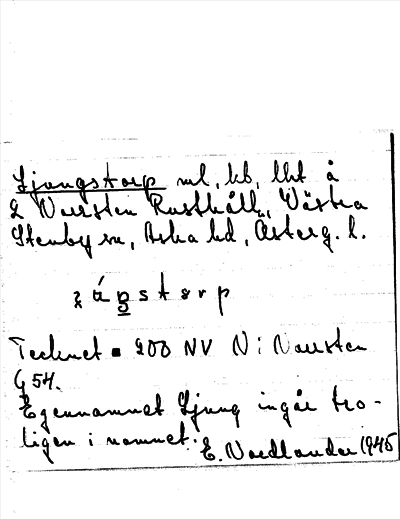 Ljungstorp ml, kb, lht å
2 Narsten Rusthåll, Västra
Stenby sn, Aska hd, Österg. l.
Tecknet ▪ 200 NV N i Narsten
G 54.
Egennamnet Ljung ingår tro-
ligen i namnet.
E. Nordlander 1945